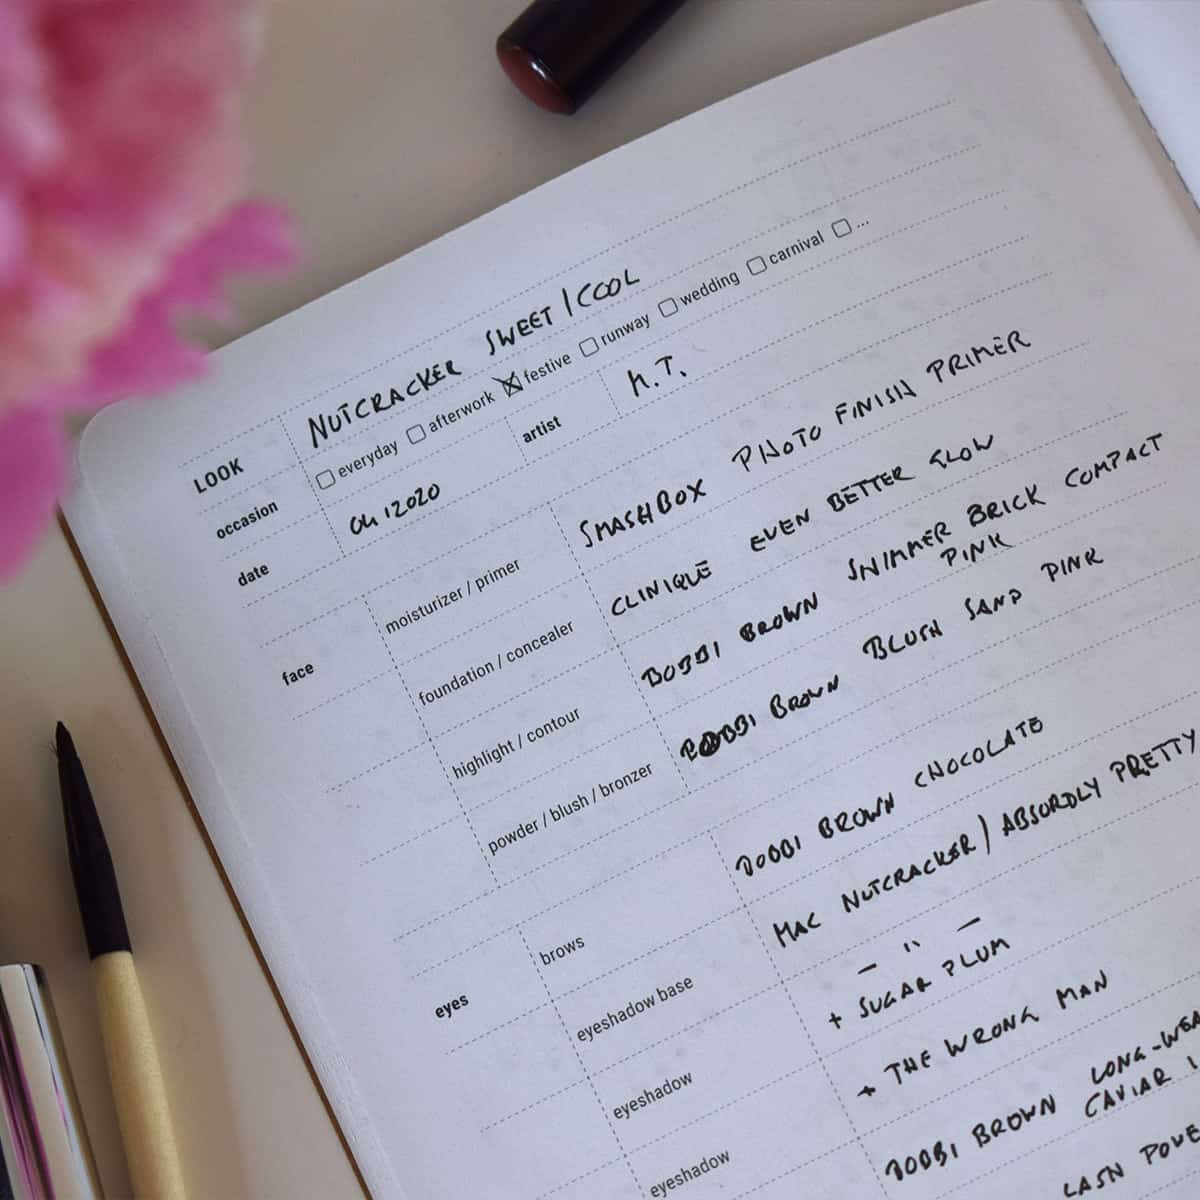 LOOK NUTCRACKER SWEET / COOL
occasion everyday afterwork festive runway wedding carnival ...
date 04 / 2020 artist M.T.
face moisturizer / primer SMASHBOX PHOTO FINISH PRIMER
foundation / concealer CLINIQUE EVEN BETTER GLOW
highlight / contour BOBBI BROWN SHIMMER BRICK COMPACT
PINK
powder / blush / bronzer BOBBI BROWN BLUSH SAND PINK
eyes brows BOBBI BROWN CHOCOLATE
eyeshadow base MAC NUTCRACKER / ABSURDLY PRETTY
eyeshadow — " — + SUGAR PLUM
eyeshadow + THE WRONG MAN
BOBBI BROWN LONG-WEA
CAVIAR I
LASH POWE